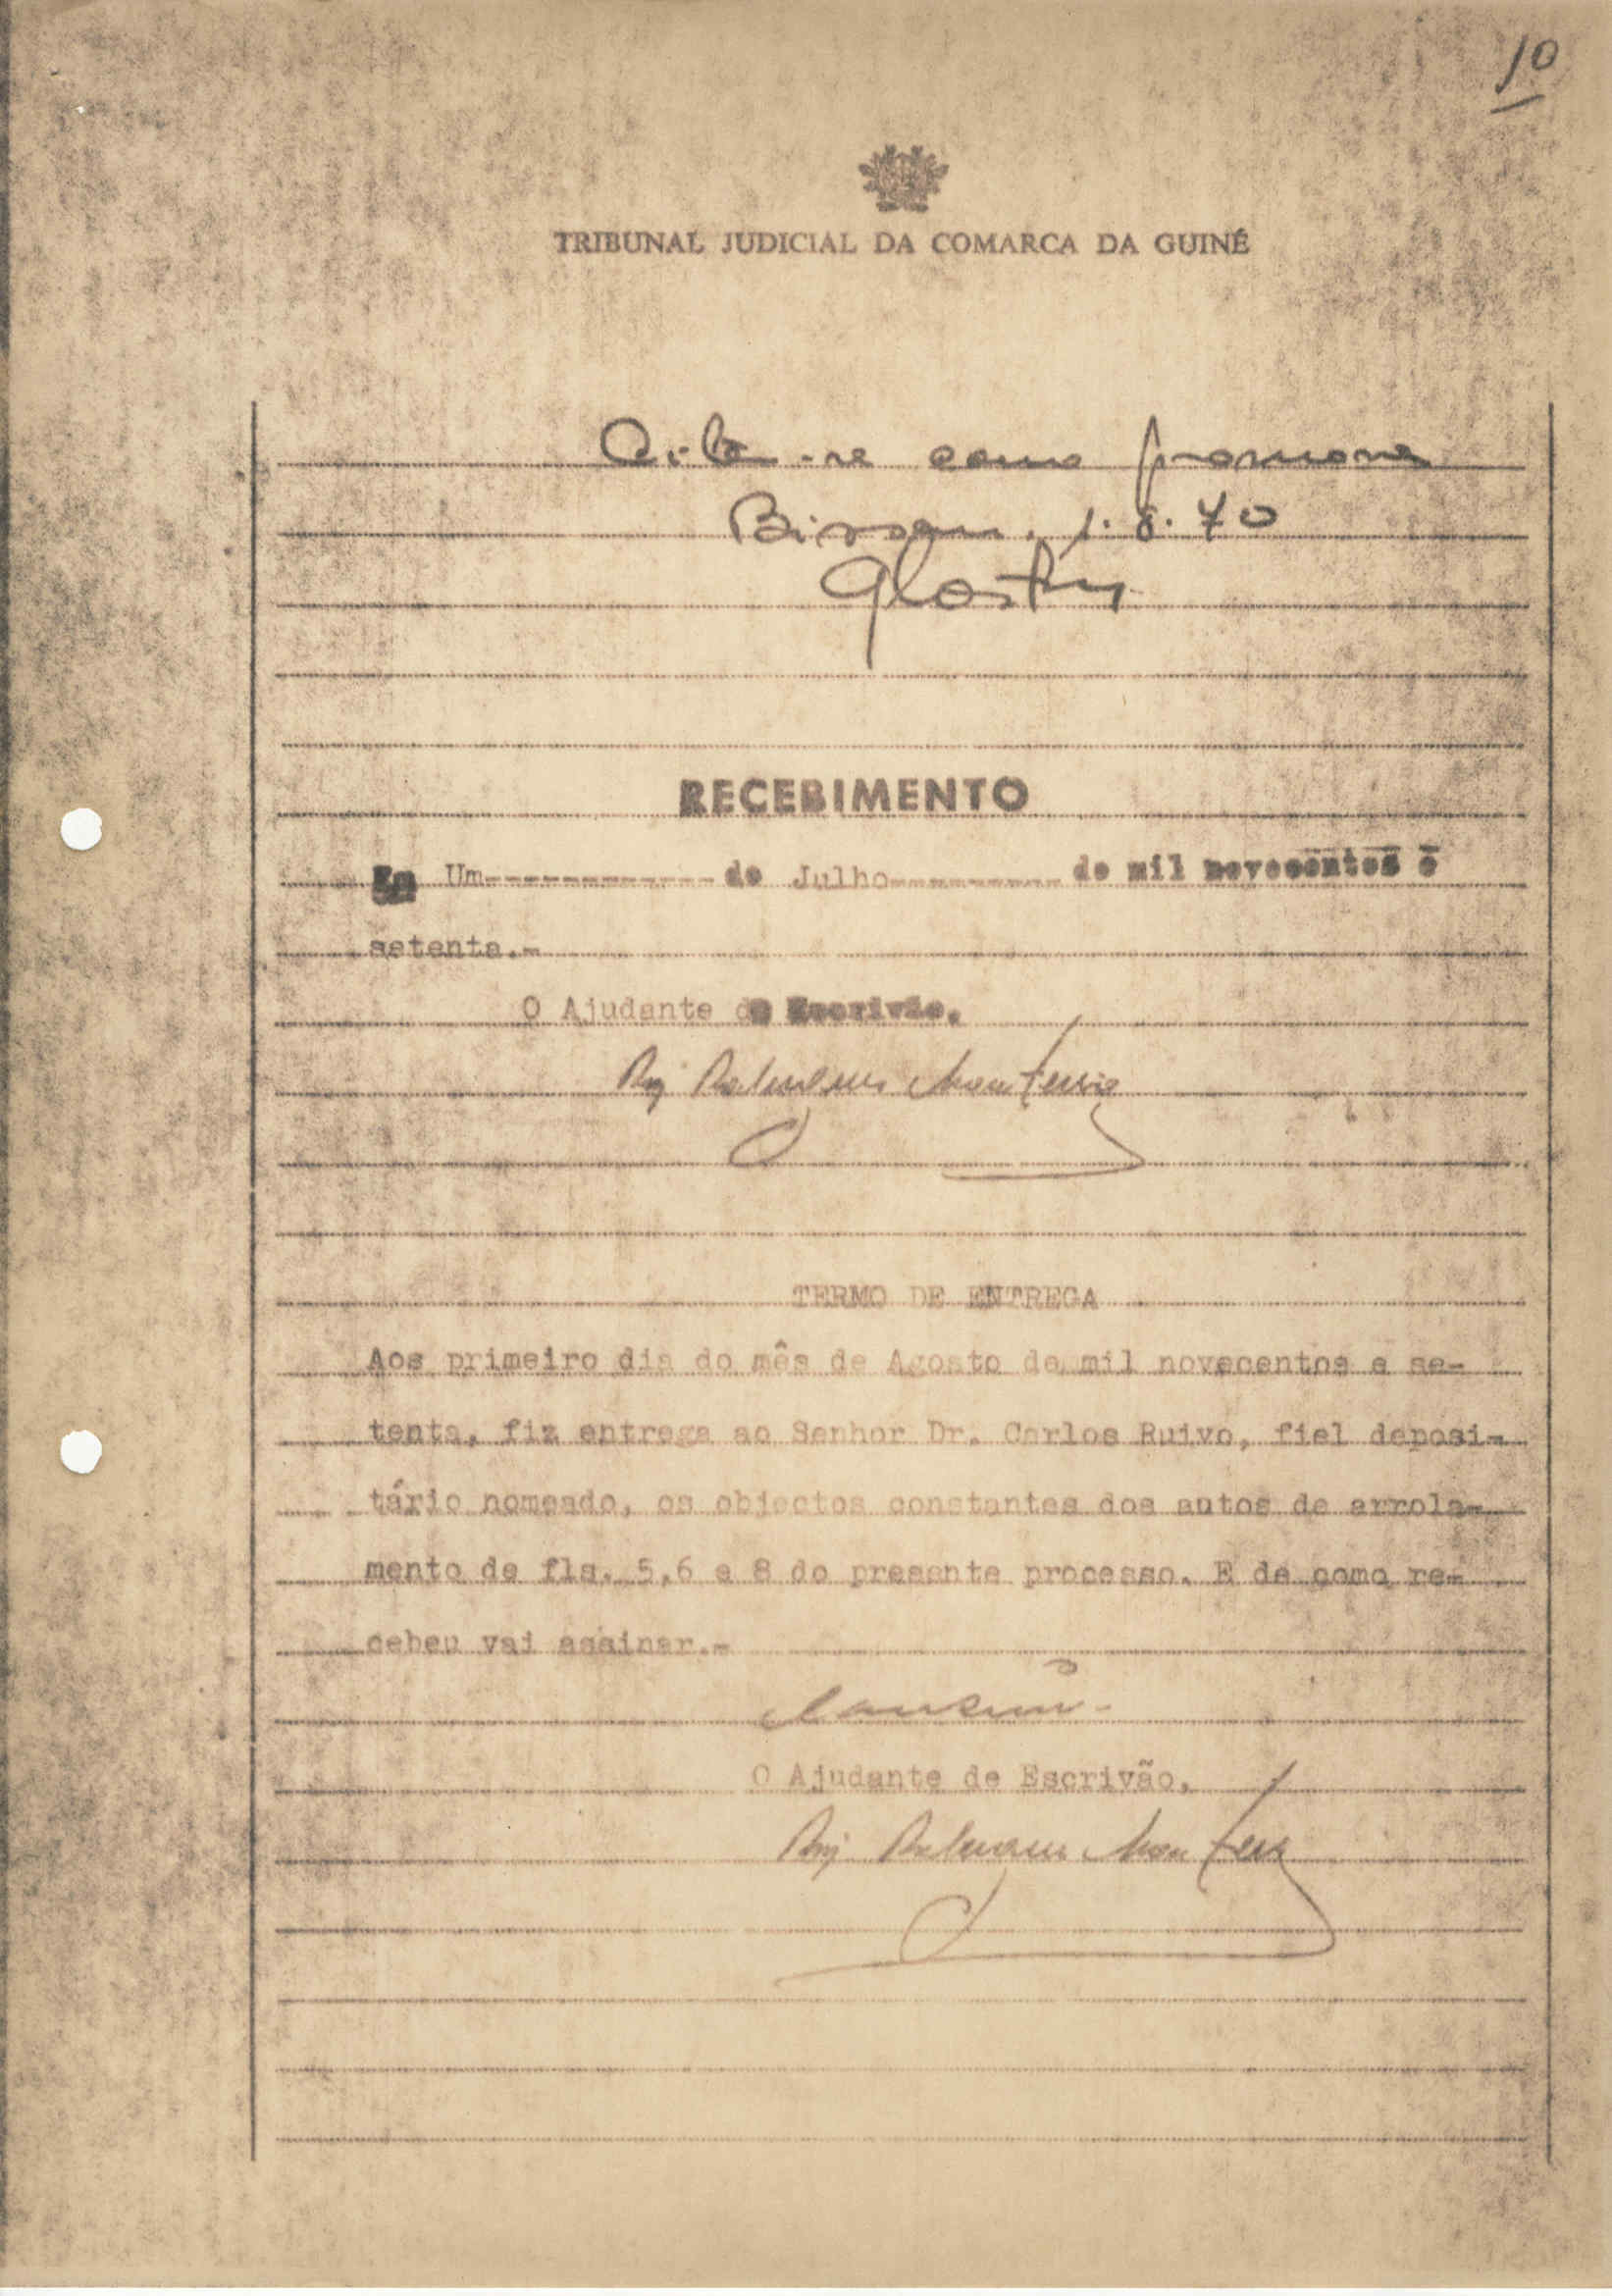 10
TRIBUNAL JUDICIAL DA COMARCA DA GUINÉ
como promove
Bissau, 1.8.70
RECEBIMENTO
Em Um------------- de Julho---------- de mil novecentos e
setenta.-
O Ajudante de Escrivão,
TERMO DE ENTREGA
Aos primeiro dia do mês de Agosto de mil novecentos e se-
tenta, fiz entrega ao Senhor Dr. Carlos Ruivo, fiel deposi-
tário nomeado, os objectos constantes dos autos de arrola-
mento de fls. 5,6 e 8 do presente processo. E de como re-
cebeu vai assinar.-
O Ajudante de Escrivão,